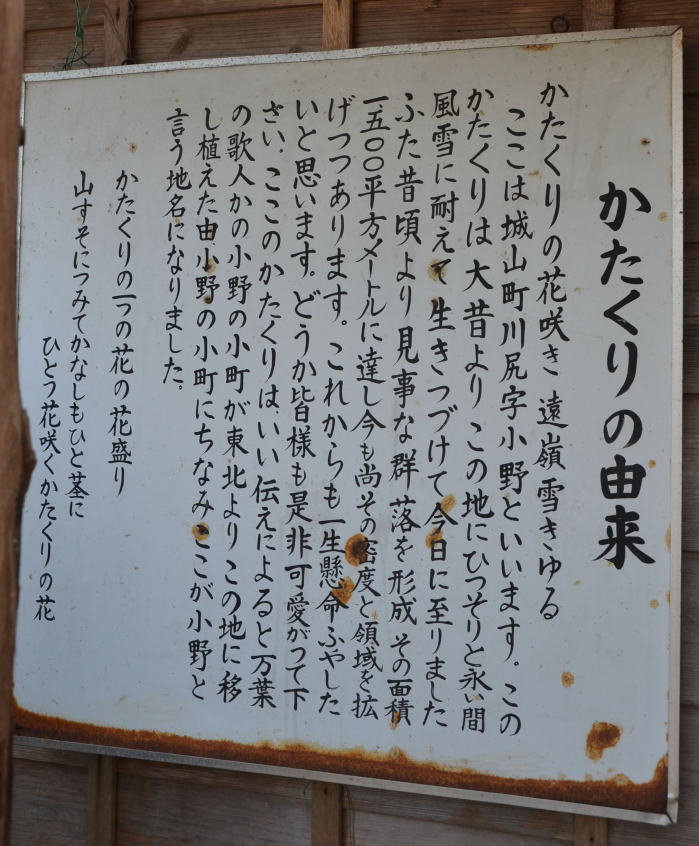 かたくりの由来
かたくりの花咲き 遠嶺雪きゆる
ここは城山町川尻字小野といいます。この
かたくりは大昔よりこの地にひっそりと永い間
風雪に耐えて生きつづけて今日に至りました
ふた昔頃より見事な群落を形成その面積
一五〇〇平方メートルに達し今も尚その密度と領域を拡
げつつあります。これからも一生懸命ふやした
いと思います。どうか皆様も是非可愛がって下
さい。ここのかたくりは、いい伝えによると万葉
の歌人かの小野の小町が東北よりこの地に移
し植えた由小野の小町にちなみここが小野と
言う地名になりました。
かたくりの一つの花の花盛り
山すそにつみてかなしもひと茎に
ひとう花咲くかたくりの花